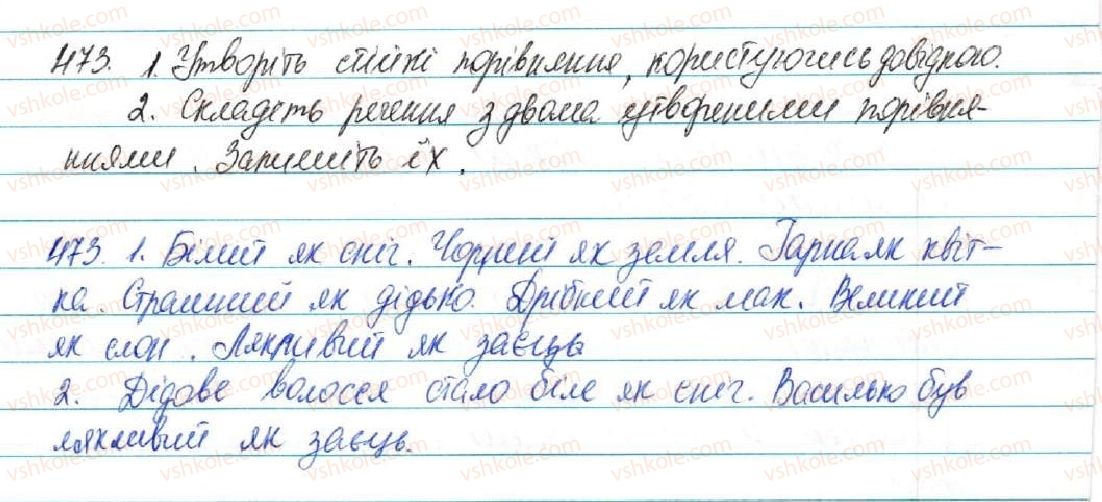 473. 1. Утворіть стійкі порівняння, користуючись довідкою.
2. Складіть речення з двома утвореними порівня-
ннями. Запишіть їх.
473. 1. Білий як сніг. Чорний як земля. Гарна як квіт-
ка. Страшний як дідько. Дрібний як мак. Великий
як слон. Лякливий як заєць
2. Дідове волосся стало біле як сніг. Василько був
лякливий як заєць.